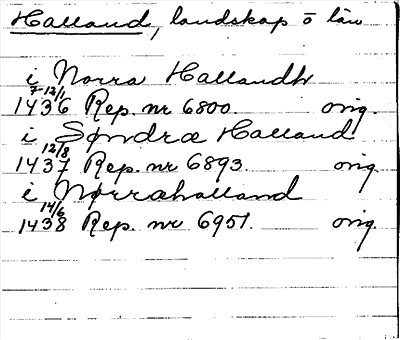 Halland, landskap o län
i Norra Hallandh
7-12/1
1436 Rep. nr 6800. orig.
i Syndræ Halland
12/8
1437 Rep. nr 6893. orig.
i Nørrahalland
14/6
1438 Rep. nr 6951. orig.